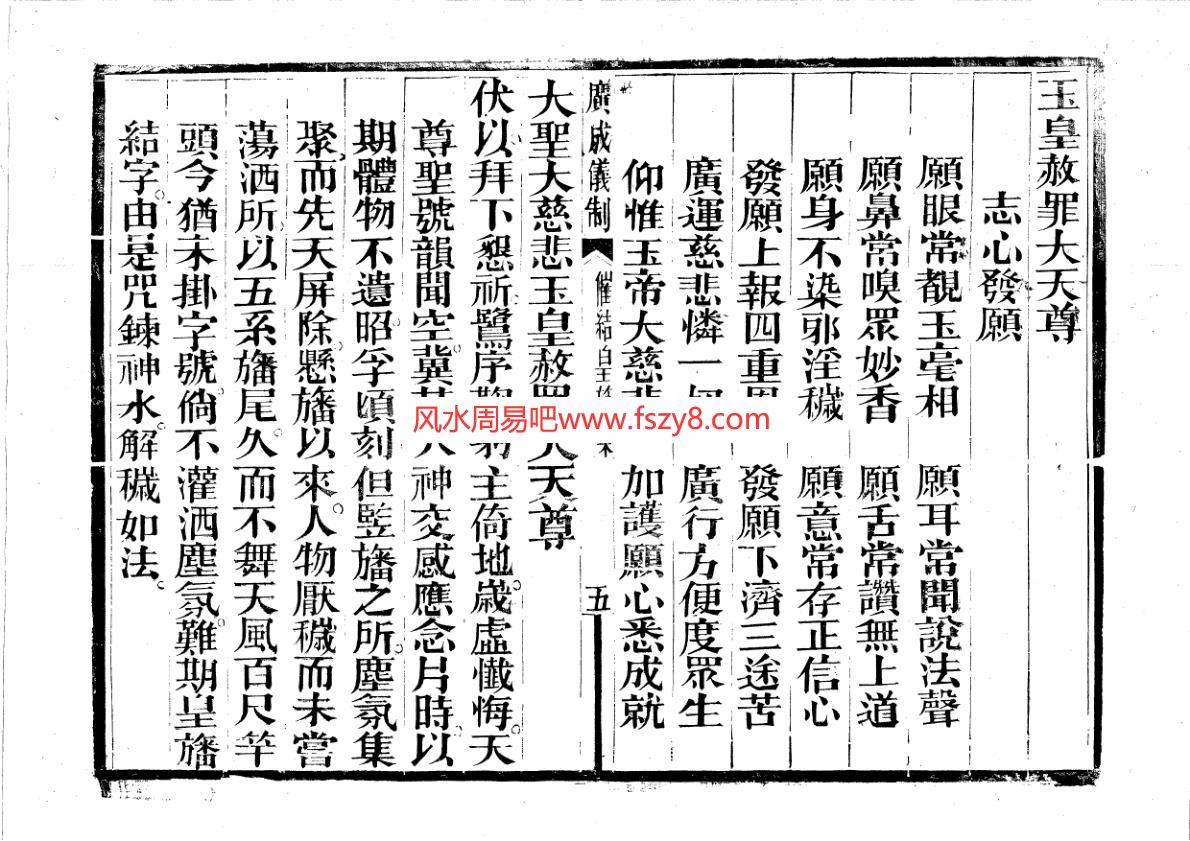 玉皇赦罪大天尊
志心發願
願眼常覩玉毫相　願耳常聞說法聲
願鼻常嗅眾妙香　願舌常讚無上道
願身不染邪淫穢　願意常存正信心
發願上報四重　發願下濟三途苦
廣運慈悲憐一切　廣行方便度眾生
仰惟玉帝大慈　加護願心悉成就
廣成儀制　催結　五
大聖大慈悲玉皇赦　大天尊
伏以拜下懇祈鷺序　主倚地歲虛懺悔天
尊聖號韻聞空冀　神交感應念片時以
期體物不遺昭孚頃刻但豎旛之所塵氛集
聚而先天屏除懸旛以來人物厭穢而未嘗
蕩洒所以五系旛尾久而不舞天風百尺竿
頭今猶未掛字號倘不灌洒塵氛難期皇旛
結字由是咒鍊神水解穢如法
风水周易吧www.fszy8.com